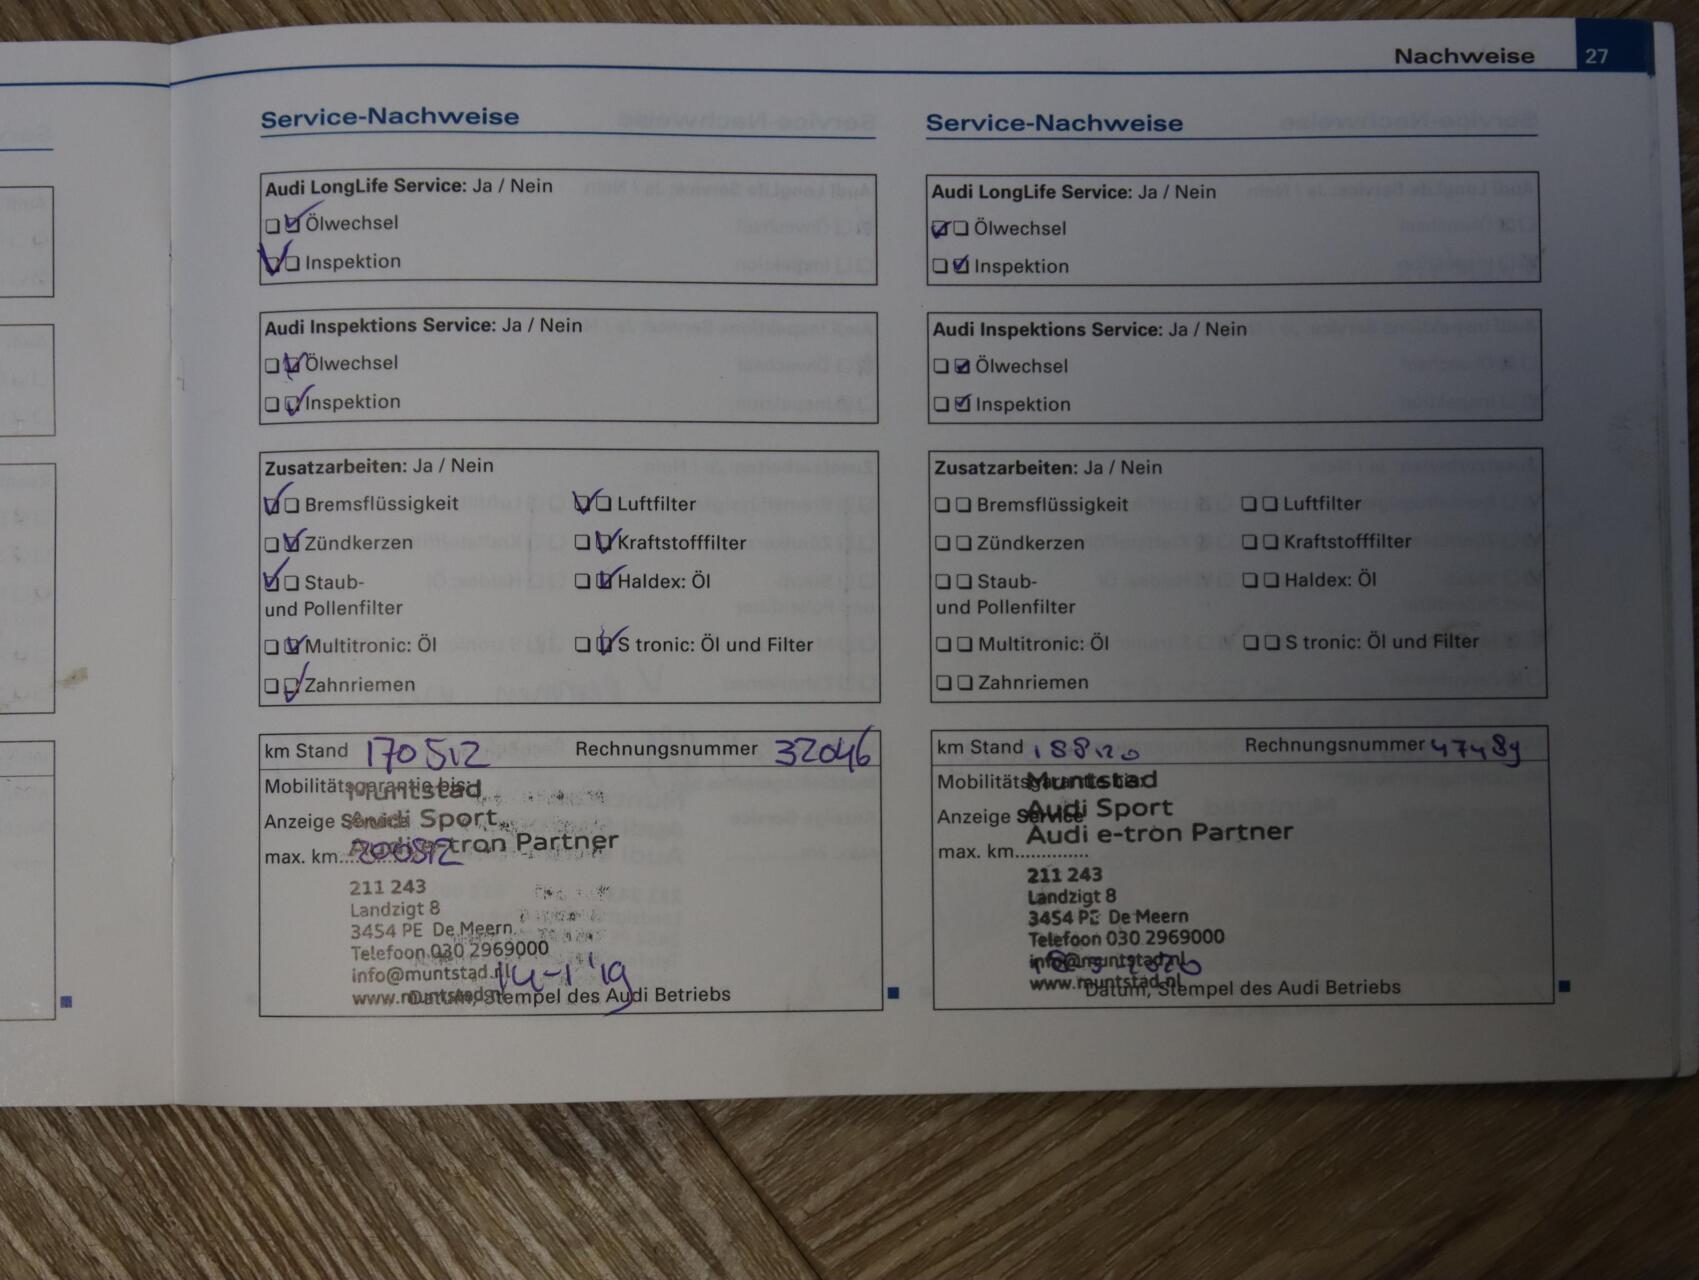 Nachweise 27
Service-Nachweise
Audi LongLife Service: Ja / Nein
Ölwechsel
Inspektion
Audi Inspektions Service: Ja / Nein
Ölwechsel
Inspektion
Zusatzarbeiten: Ja / Nein
Bremsflüssigkeit Luftfilter
Zündkerzen Kraftstofffilter
Staub- Haldex: Öl
und Pollenfilter
Multitronic: Öl S tronic: Öl und Filter
Zahnriemen
km Stand 170512 Rechnungsnummer 32046
Mobilitätsgarantie bis:
Muntstad
Anzeige Service
Audi Sport
max. km 200512
Audi e-tron Partner
211 243
Landzigt 8
3454 PE De Meern
Telefoon 030 2969000
info@muntstad.nl
14-1'19
www.muntstad.nl
Datum, Stempel des Audi Betriebs
Service-Nachweise
Audi LongLife Service: Ja / Nein
Ölwechsel
Inspektion
Audi Inspektions Service: Ja / Nein
Ölwechsel
Inspektion
Zusatzarbeiten: Ja / Nein
Bremsflüssigkeit Luftfilter
Zündkerzen Kraftstofffilter
Staub- Haldex: Öl
und Pollenfilter
Multitronic: Öl S tronic: Öl und Filter
Zahnriemen
km Stand 188120 Rechnungsnummer 47489
Mobilitätsgarantie bis:
Muntstad
Anzeige Service
Audi Sport
Audi e-tron Partner
max. km..............
211 243
Landzigt 8
3454 PE De Meern
Telefoon 030 2969000
info@muntstad.nl
2020
www.muntstad.nl
Datum, Stempel des Audi Betriebs